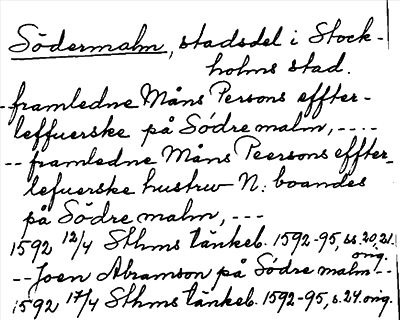 Södermalm, stadsdel i Stock-
holms stad.
-framledne Måns Persons effter-
leffuerske på Södre malm, ----
-- framledne Måns Peersons effter-
lefuerske hustrw N: boandes
på Södre malm, ---
1592 12/4 Sthms tänkeb. 1592-95, ss. 20, 21.
orig.
--Joen Abramson på Södre malm --
1592 17/4 Sthms tänkeb. 1592-95, s. 24. orig.